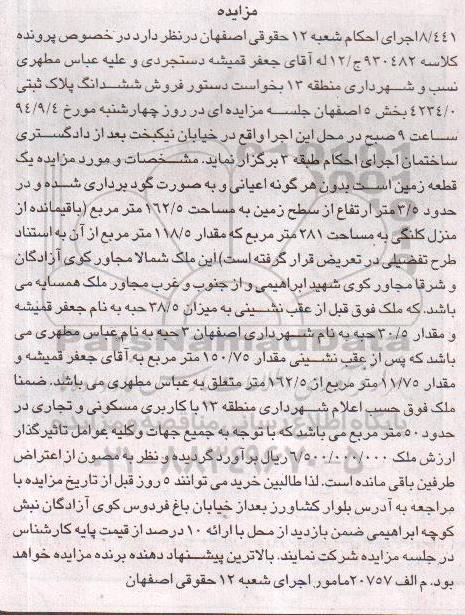 مزایده
۸/۴۴۱اجرای احکام شعبه ۱۲ حقوقی اصفهان درنظر دارد در خصوص پرونده
کلاسه ۹۳۰۴۸۲ج/۱۲له آقای جعفر قمیشه دستجردی و علیه عباس مطهری
نسب و شهرداری منطقه ۱۳ بخواست دستور فروش ششدانگ پلاک ثبتی
۴۲۳۴/۰ بخش ۵ اصفهان جلسه مزایده ای در روز چهارشنبه مورخ ۹۴/۹/۴
ساعت ۹ صبح در محل این اجرا واقع در خیابان نیکبخت بعد از دادگستری
ساختمان اجرای احکام طبقه ۳ برگزار نماید. مشخصات و مورد مزایده یک
قطعه زمین است بدون هر گونه اعیانی و به صورت گودبرداری شده و در
حدود ۳/۵ متر ارتفاع از سطح زمین به مساحت ۱۶۲/۵ متر مربع (باقیمانده از
منزل کلنگی به مساحت ۲۸۱ متر مربع که مقدار ۱۱۸/۵ متر مربع از آن به استناد
طرح تفضیلی در تعریض قرار گرفته است) این ملک شمالا مجاور کوی آزادگان
و شرقا مجاور کوی شهید ابراهیمی و از جنوب و غرب مجاور ملک همسایه می
باشد. که ملک فوق قبل از عقب نشینی به میزان ۳۸/۵ حبه به نام جعفر قمیشه
و مقدار ۳۰/۵ حبه به نام شهرداری اصفهان ۳ حبه به نام عباس مطهری می
باشد که پس از عقب نشینی مقدار ۱۵۰/۷۵ متر مربع به آقای جعفر قمیشه و
مقدار ۱۱/۷۵ متر مربع از ۱۶۲/۵ متر متعلق به عباس مطهری می باشد. ضمنا
ملک فوق حسب اعلام شهرداری منطقه ۱۳ با کاربری مسکونی و تجاری در
حدود ۵۰ متر مربع می باشد که با توجه به جمیع جهات و کلیه عوامل تاثیر گذار
ارزش ملک ۶/۵۰۰/۰۰۰/۰۰۰ ریال برآورد گردیده و نظر به مصون از اعتراض
طرفین باقی مانده است. لذا طالبین خرید می توانند ۵ روز قبل از تاریخ مزایده با
مراجعه به آدرس بلوار کشاورز بعد از خیابان باغ فردوس کوی آزادگان نبش
کوچه ابراهیمی ضمن بازدید از محل با ارائه ۱۰ درصد از قیمت پایه کارشناس
در جلسه مزایده شرکت نمایند. بالاترین پیشنهاد دهنده برنده مزایده خواهد
بود. م الف ۲۰۷۵۷ مامور اجرای شعبه ۱۲ حقوقی اصفهان